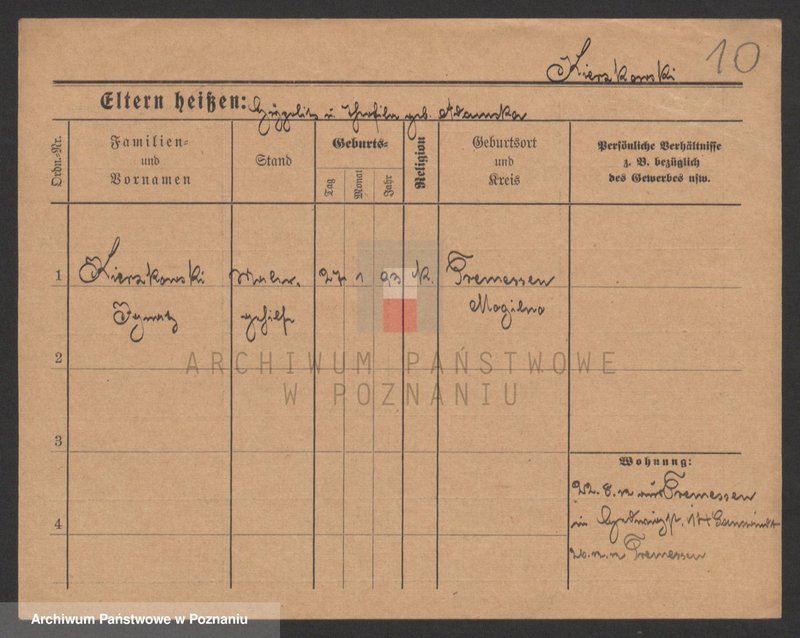 10
Kierzkowski
Eltern heißen: Hyppolit u. Theofila geb. Adamska
Ordn.-Nr.
Familien-
und
Vornamen
Stand
Geburts-
Tag
Monat
Jahr
Religion
Geburtsort
und
Kreis
Persönliche Verhältnisse
z. B. bezüglich
des Gewerbes usw.
1 Kierzkowski Maler- 27 1 93 K. Tremessen
Ignatz gehilfe Mogilno
2
ARCHIWUM PAŃSTWOWE
W POZNANIU
3
Wohnung:
22. 8. aus Tremessen
in
4
Tremessen
Archiwum Państwowe w Poznaniu